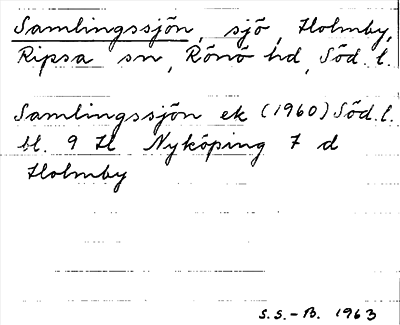 Samlingssjön, sjö, Holmby,
Ripsa sn, Rönö hd, Söd. l.
Samlingssjön ek (1960) Söd. l.
bl. 9 H Nyköping 7 d
Holmby
S.S.-B. 1963